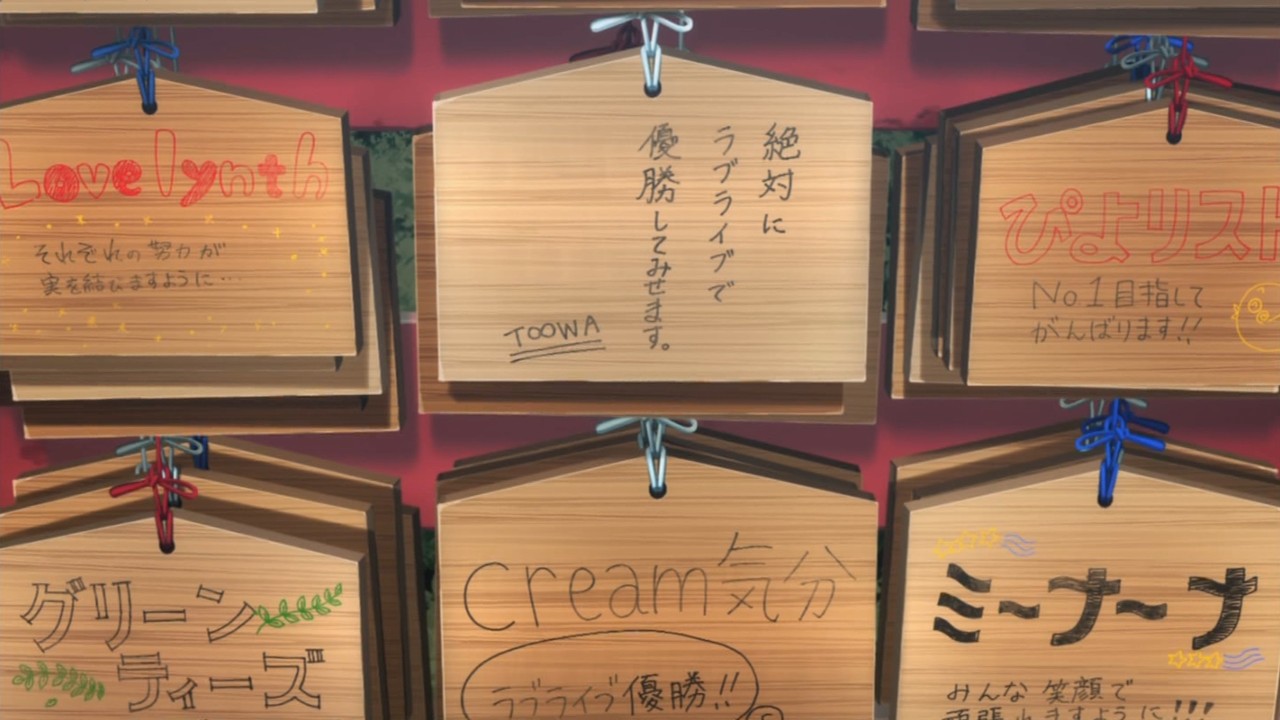 Lovelynth
それぞれの努力が
実を結びますように…
絶対に
ラブライブで
優勝してみせます。
TOOWA
ぴよリスト
No.1目指して
がんばります!!
グリーン
ティーズ
cream気分
ラブライブ優勝!!
ミ〜ナ〜ナ
みんな笑顔で
頑張れますように!!!